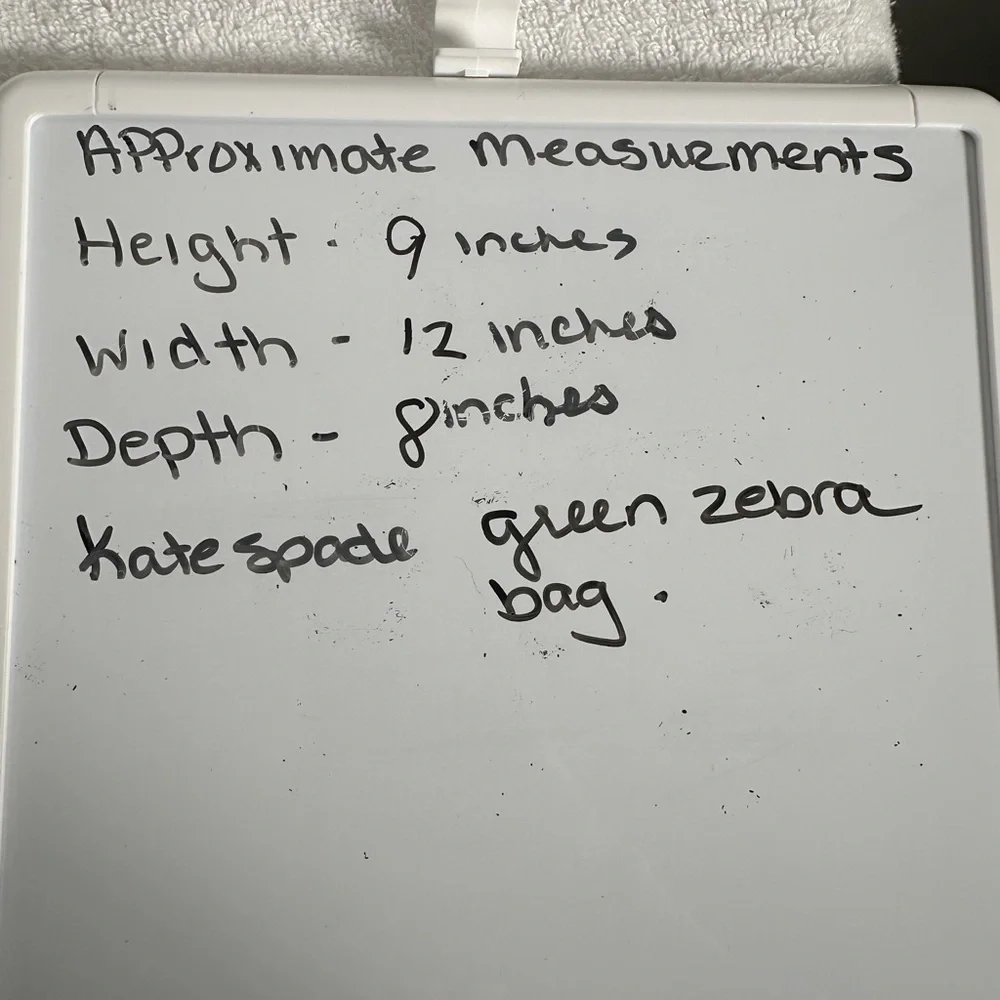 Approximate measurments
Height - 9 inches
Width - 12 inches
Depth - 8 inches
Kate spade green zebra
bag.